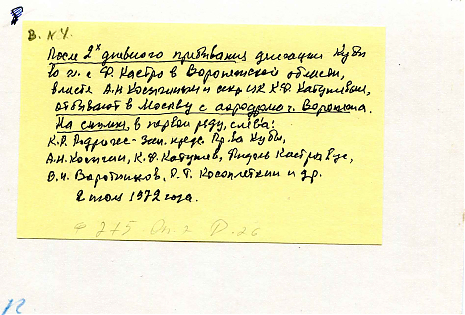 В. №4.
После 2х дневного пребывания делегации Кубы
во гл. с Ф. Кастро в Воронежской области,
вместе А.Н Косыгиным и секр ЦК К.Ф. Катушевым,
отбывают в Москву с аэродрома г. Воронежа.
На снимке, в первом ряду, слева:
К.Р. Родригес - Зам. предс. Пр. ва Кубы,
А.Н. Косыгин, К.Ф. Катушев, Фидель Кастро Рус,
В.И. Воротников, и др.
2 июля 1972 года.
Ф 275 Оп. 2 Д. 26
12